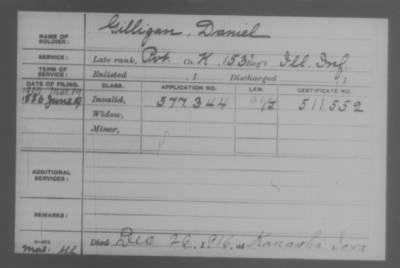 Gilligan, Daniel
NAME OF SOLDIER:
SERVICE: Late rank, Pvt. Co. K, 153" Reg't Ill. Inf.
TERM OF SERVICE: Enlisted , 1 Discharged , 1
DATE OF FILING. CLASS. APPLICATION NO. LAW. CERTIFICATE NO.
1886 June 19 Invalid, 577344 511.552
Widow,
Minor,
ADDITIONAL SERVICES:
REMARKS:
Died Dec 26, 1916, at Kanawha Iowa